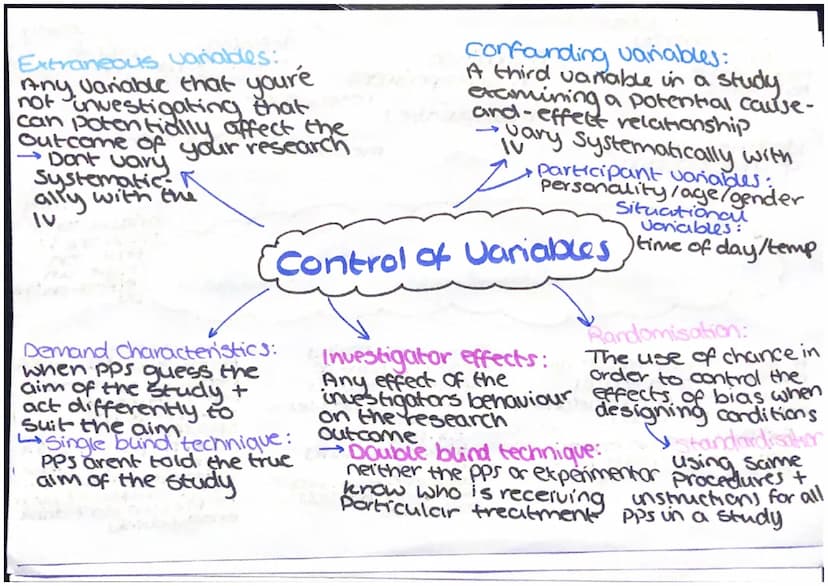 Extraneous variables:
Any variable that you're
not investigating that
can potentially affect the
outcome of your research
→ Dont vary
systematic-
ally with the
IV
Confounding variables:
A third variable in a study
examining a potential cause-
and-effect relationship
→ vary systematically with
IV
→ participant variables:
personality/age/gender
Situational
variables:
time of day/temp
Control of Variables
Demand characteristics:
when PPs guess the
aim of the study +
act differently to
suit the aim
↳ Single blind technique:
PPs arent told the true
aim of the study
Investigator effects:
Any effect of the
investigators behaviour
on the research
outcome
→ Double blind technique:
neither the PPs or experimentor
know who is receiving
particular treatment
Randomisation:
The use of chance in
order to control the
effects of bias when
designing conditions
using same
procedures +
instructions for all
PPs in a study